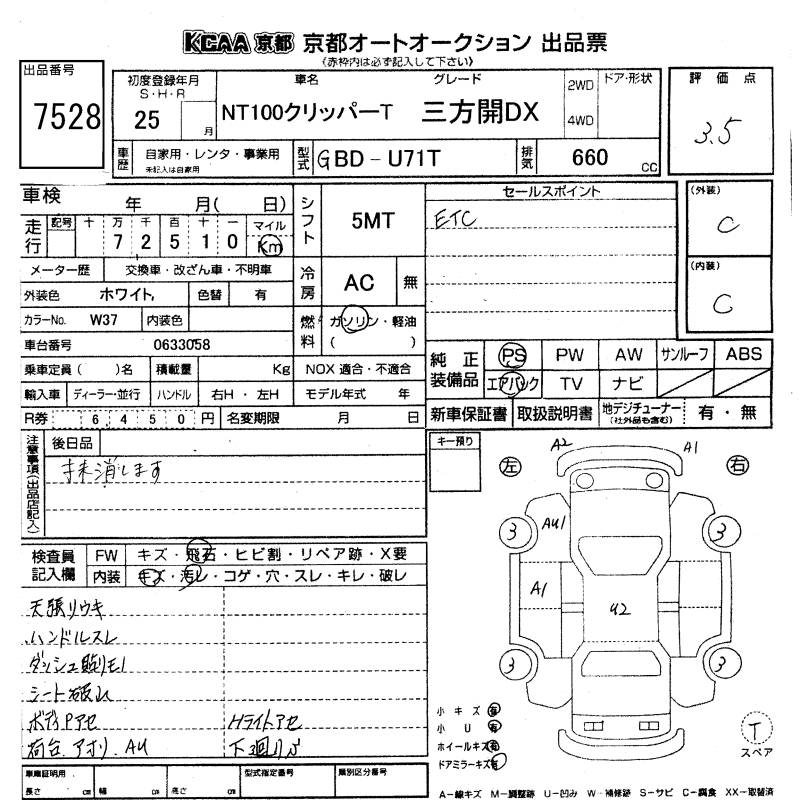 KCAA 京都 京都オートオークション 出品票
(赤枠内は必ず記入して下さい)
出品番号
7528
初度登録年月
S・H・R
25 月
車名 グレード
NT100クリッパーT 三方開DX
2WD
4WD
ドア・形状
評価点
3.5
車歴 自家用・レンタ・事業用
未記入は自家用
型式 GBD-U71T
排気 660 cc
車検 年 月( 日)
シフト 5MT
セールスポイント
ETC
(外装)
C
(内装)
C
走行 記号 十 万 千 百 十 一 マイル
7 2 5 1 0 Km
メーター歴 交換車・改ざん車・不明車
冷房 AC 無
外装色 ホワイト, 色替 有
カラーNo. W37 内装色
燃料 ガソリン・軽油
( )
車台番号 0633058
乗車定員 ( )名 積載量 Kg NOX 適合・不適合
輸入車 ディーラー・並行 ハンドル 右H・左H モデル年式 年
R券 6450円 名変期限 月 日
純正装備品 PS PW AW サンルーフ ABS
エアバック TV ナビ
新車保証書 取扱説明書 地デジチューナー(社外品も含む) 有・無
注意事項(出品店記入)
後日品
抹消します
キー預り
左 右
A2 A1
3 3
AU1
A1
U2
3 3
検査員記入欄
FW キズ・飛石・ヒビ割・リペア跡・X要
内装 キズ・汚レ・コゲ・穴・スレ・キレ・破レ
天張リウキ
ハンドルスレ
ダッシュ貼リモノ
シート破レ
ボディPアセ Hライトアセ
荷台.アオリ.AU 下廻りS
小キズ 有
小U 有
ホイールキズ 有
ドアミラーキズ 有
T
スペア
車庫証明用
長さ cm 幅 cm 高さ cm
型式指定番号 類別区分番号
A-線キズ M-調整跡 U-凹み W-補修跡 S-サビ C-腐食 XX-取替済